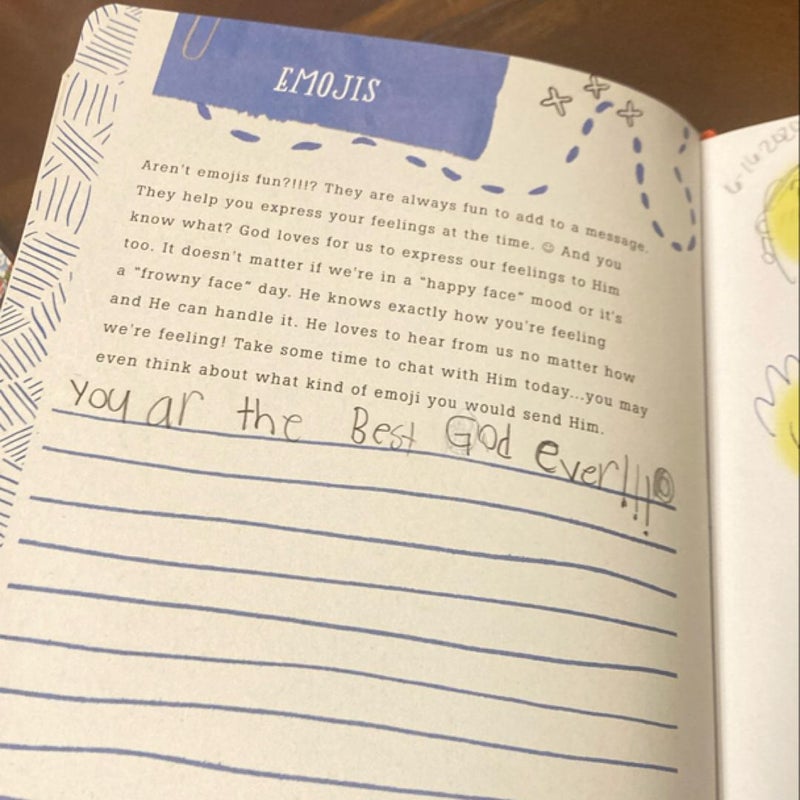 EMOJIS
Aren't emojis fun?!!!? They are always fun to add to a message.
They help you express your feelings at the time. ☺ And you
know what? God loves for us to express our feelings to Him
too. It doesn't matter if we're in a "happy face" mood or it's
a "frowny face" day. He knows exactly how you're feeling
and He can handle it. He loves to hear from us no matter how
we're feeling! Take some time to chat with Him today...you may
even think about what kind of emoji you would send Him.
you ar the Best God ever!!!
6-16-2020